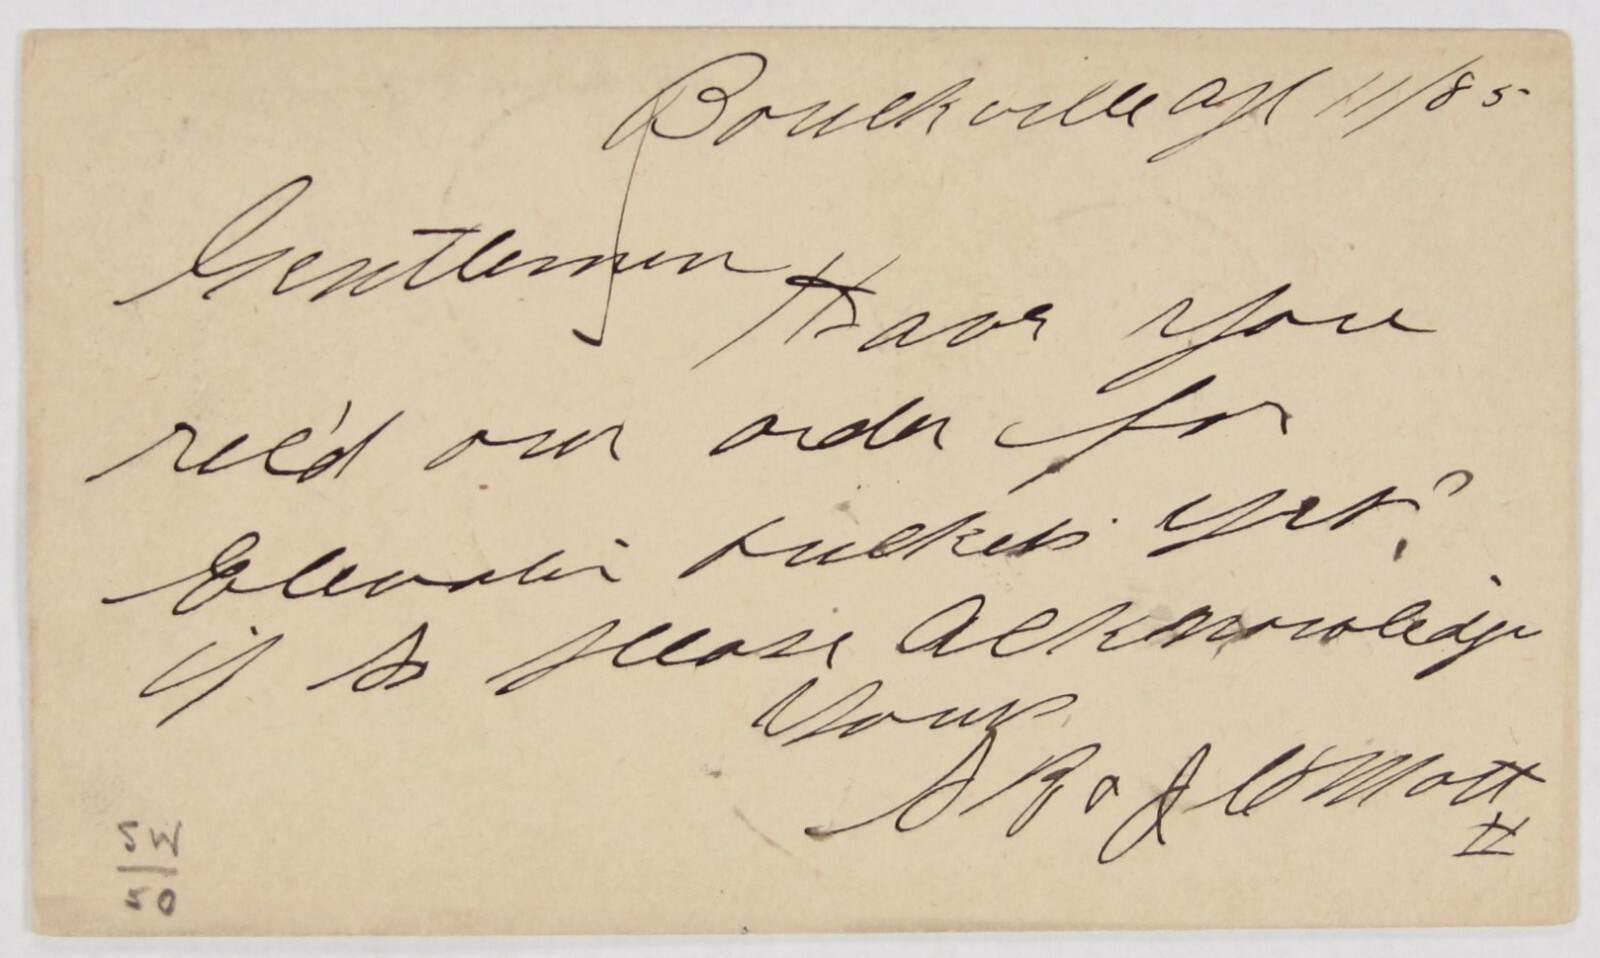 Bouckville Apl 11/85
Gentlemen
Have you
rec'd our order for
Elevator buckets yet?
if so please acknowledge
Yours
S R & J C Mott
H